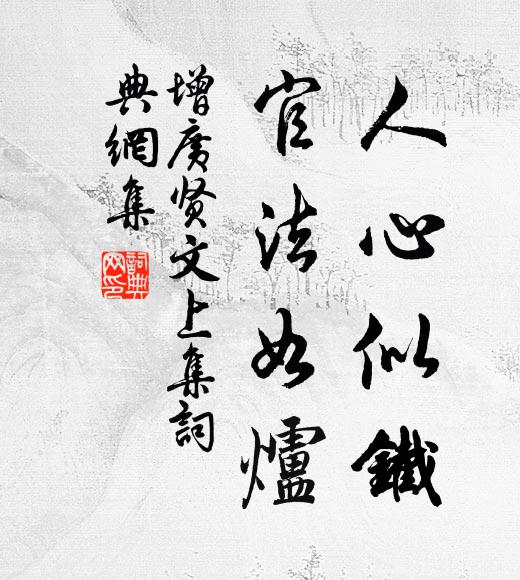 人心似鐵
官法如爐
增廣贤文上集詞
典網集
詞典網印